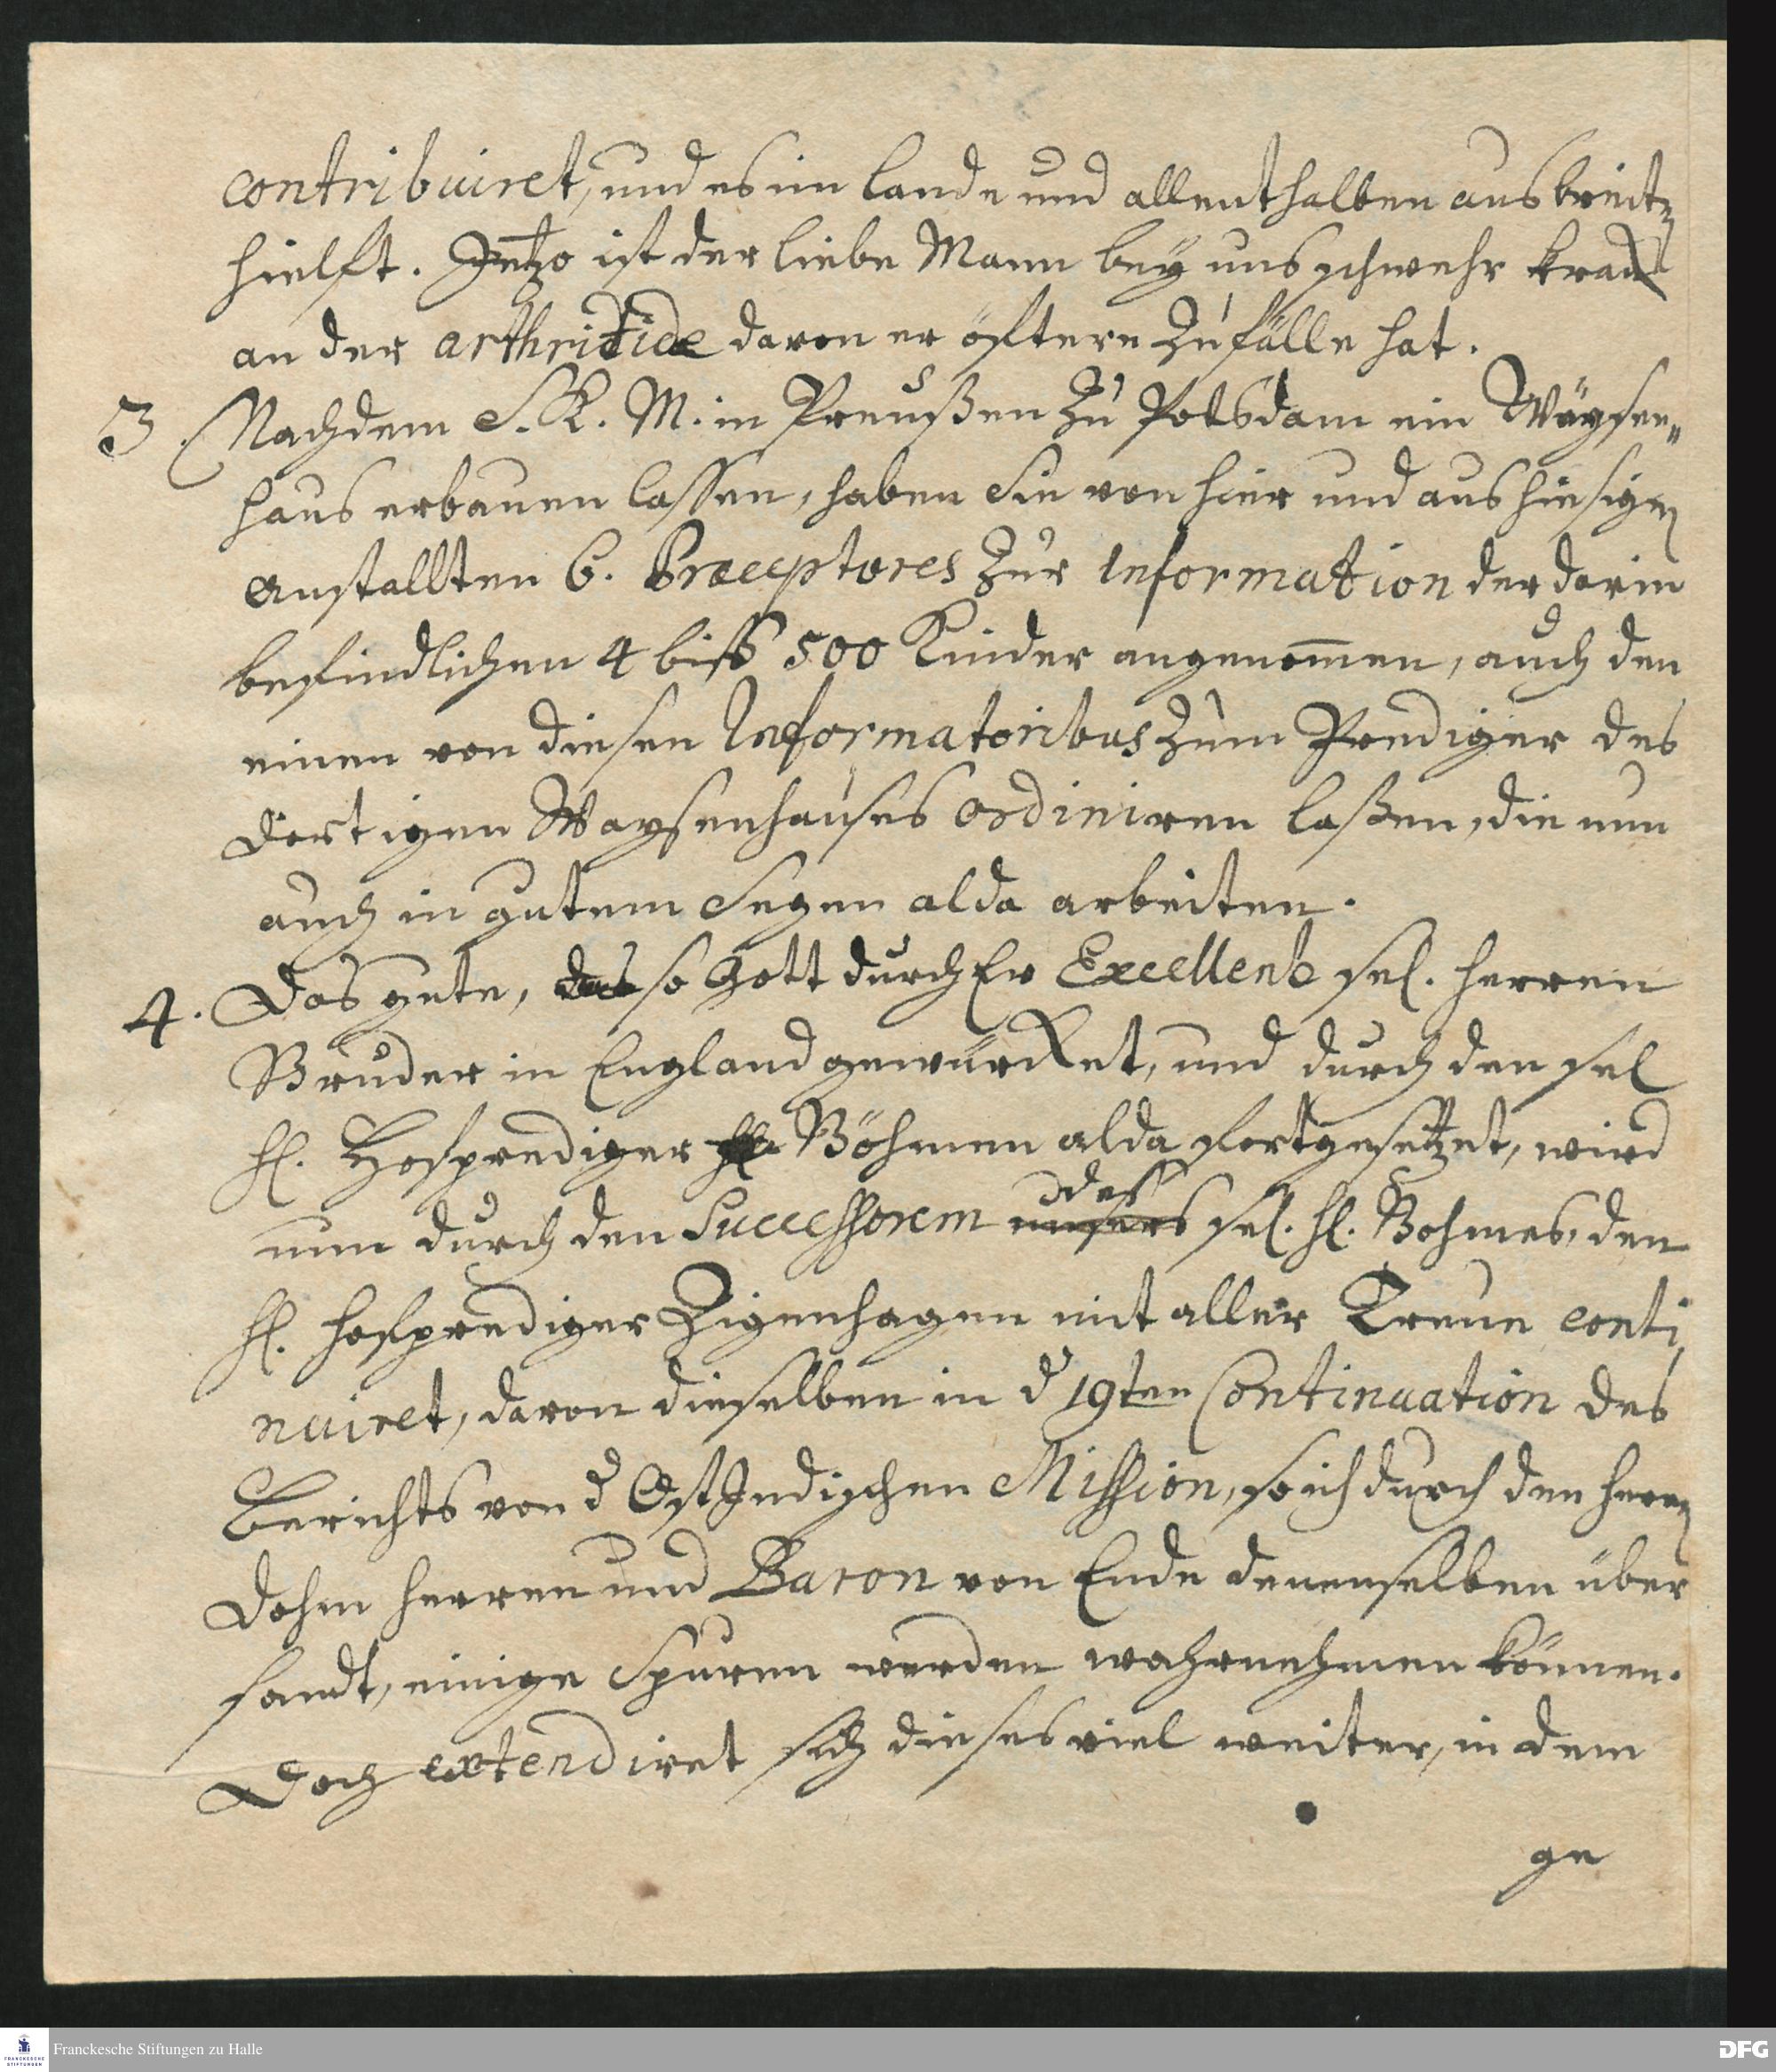 contribuiret, und es im Lande und allenthalben ausbreiten
hielft. Jetzo ist der liebe Mann bey uns schwehr kranck
an der arthritide davon er öftere Zufälle hat.
3. Nachdem S. K. M. in Preußen zu Potsdam ein Wäysen„
haus erbauen lassen, haben Sie von hier und aus hiesigen
Anstallten 6. Præceptores zur Information der darin
befindlichen 4 biß 500 Kinder angenom̅en, auch den
einen von diesen Informatoribus zum Prediger des
dortigen Waysenhauses ordiniren laßen, die nun
auch in gutem Segen alda arbeiten.
4. Das gute, das so Gott durch Ew Excellentz sel. Herren
Bruder in England gewürcket, und durch den sel
H. Hofprediger H. Böhmen alda fortgesetzet, wird
des
nun durch den Successorem unsers sel. H. Bohmes, den
H. Hofprediger Zigenhagen mit aller Treue conti
nuiret, davon dieselben in d 19ten Continuation des
Berichts von d OstIndischen Mission, so ich durch den Herrn
Dohm Herren und Baron von Ende denenselben über
sandt, einige Spuren werden wahrnehmen können.
Doch extendiret sich dieses viel weiter, in dem
ge
Franckesche Stiftungen zu Halle
DFG
FRANCKESCHE
STIFTUNGEN